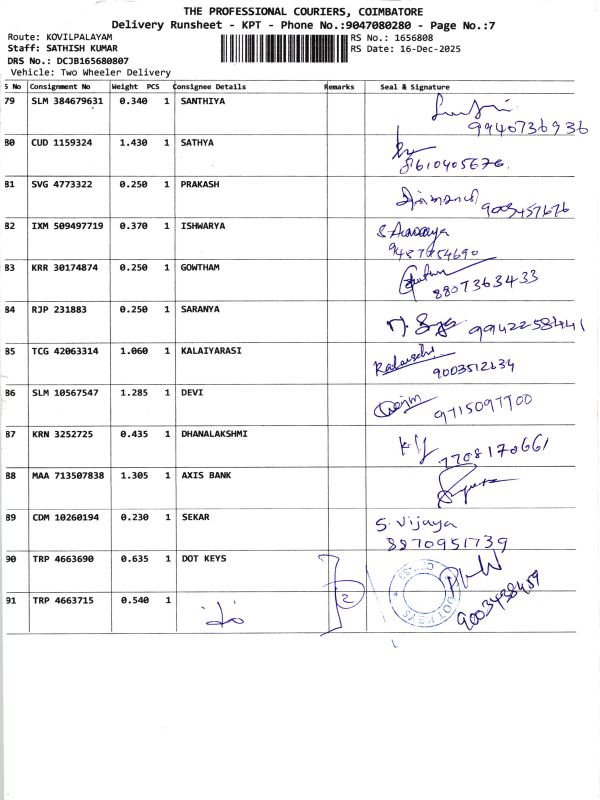 THE PROFESSIONAL COURIERS, COIMBATORE
Delivery Runsheet - KPT - Phone No.:9047080280 - Page No.:7
Route: KOVILPALAYAM
Staff: SATHISH KUMAR
DRS No.: DCJB165680807
Vehicle: Two Wheeler Delivery
RS No.: 1656808
RS Date: 16-Dec-2025
S No Consignment No Weight PCS Consignee Details Remarks Seal & Signature
79 SLM 384679631 0.340 1 SANTHIYA
9940736936
80 CUD 1159324 1.430 1 SATHYA
8610405676.
81 SVG 4773322 0.250 1 PRAKASH
9003457676
82 IXM 509497719 0.370 1 ISHWARYA
9487754690
83 KRR 30174874 0.250 1 GOWTHAM
8807363433
84 RJP 231883 0.250 1 SARANYA
9942258441
85 TCG 42063314 1.060 1 KALAIYARASI
9003512634
86 SLM 10567547 1.285 1 DEVI
9715097700
87 KRN 3252725 0.435 1 DHANALAKSHMI
7708170661
88 MAA 713507838 1.305 1 AXIS BANK
89 CDM 10260194 0.230 1 SEKAR
S. Vijaya
8870951739
90 TRP 4663690 0.635 1 DOT KEYS
2
91 TRP 4663715 0.540 1
9003438489